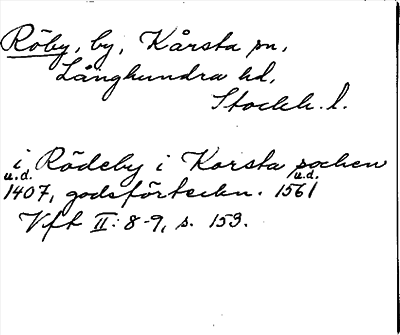 Röby, by, Kårsta sn,
Långhundra hd,
Stockh. l.
i Rödeby i Korsta sochen
u.d. u.d.
1407, godsförteckn. 1561
Vft II: 8-9, s. 153.